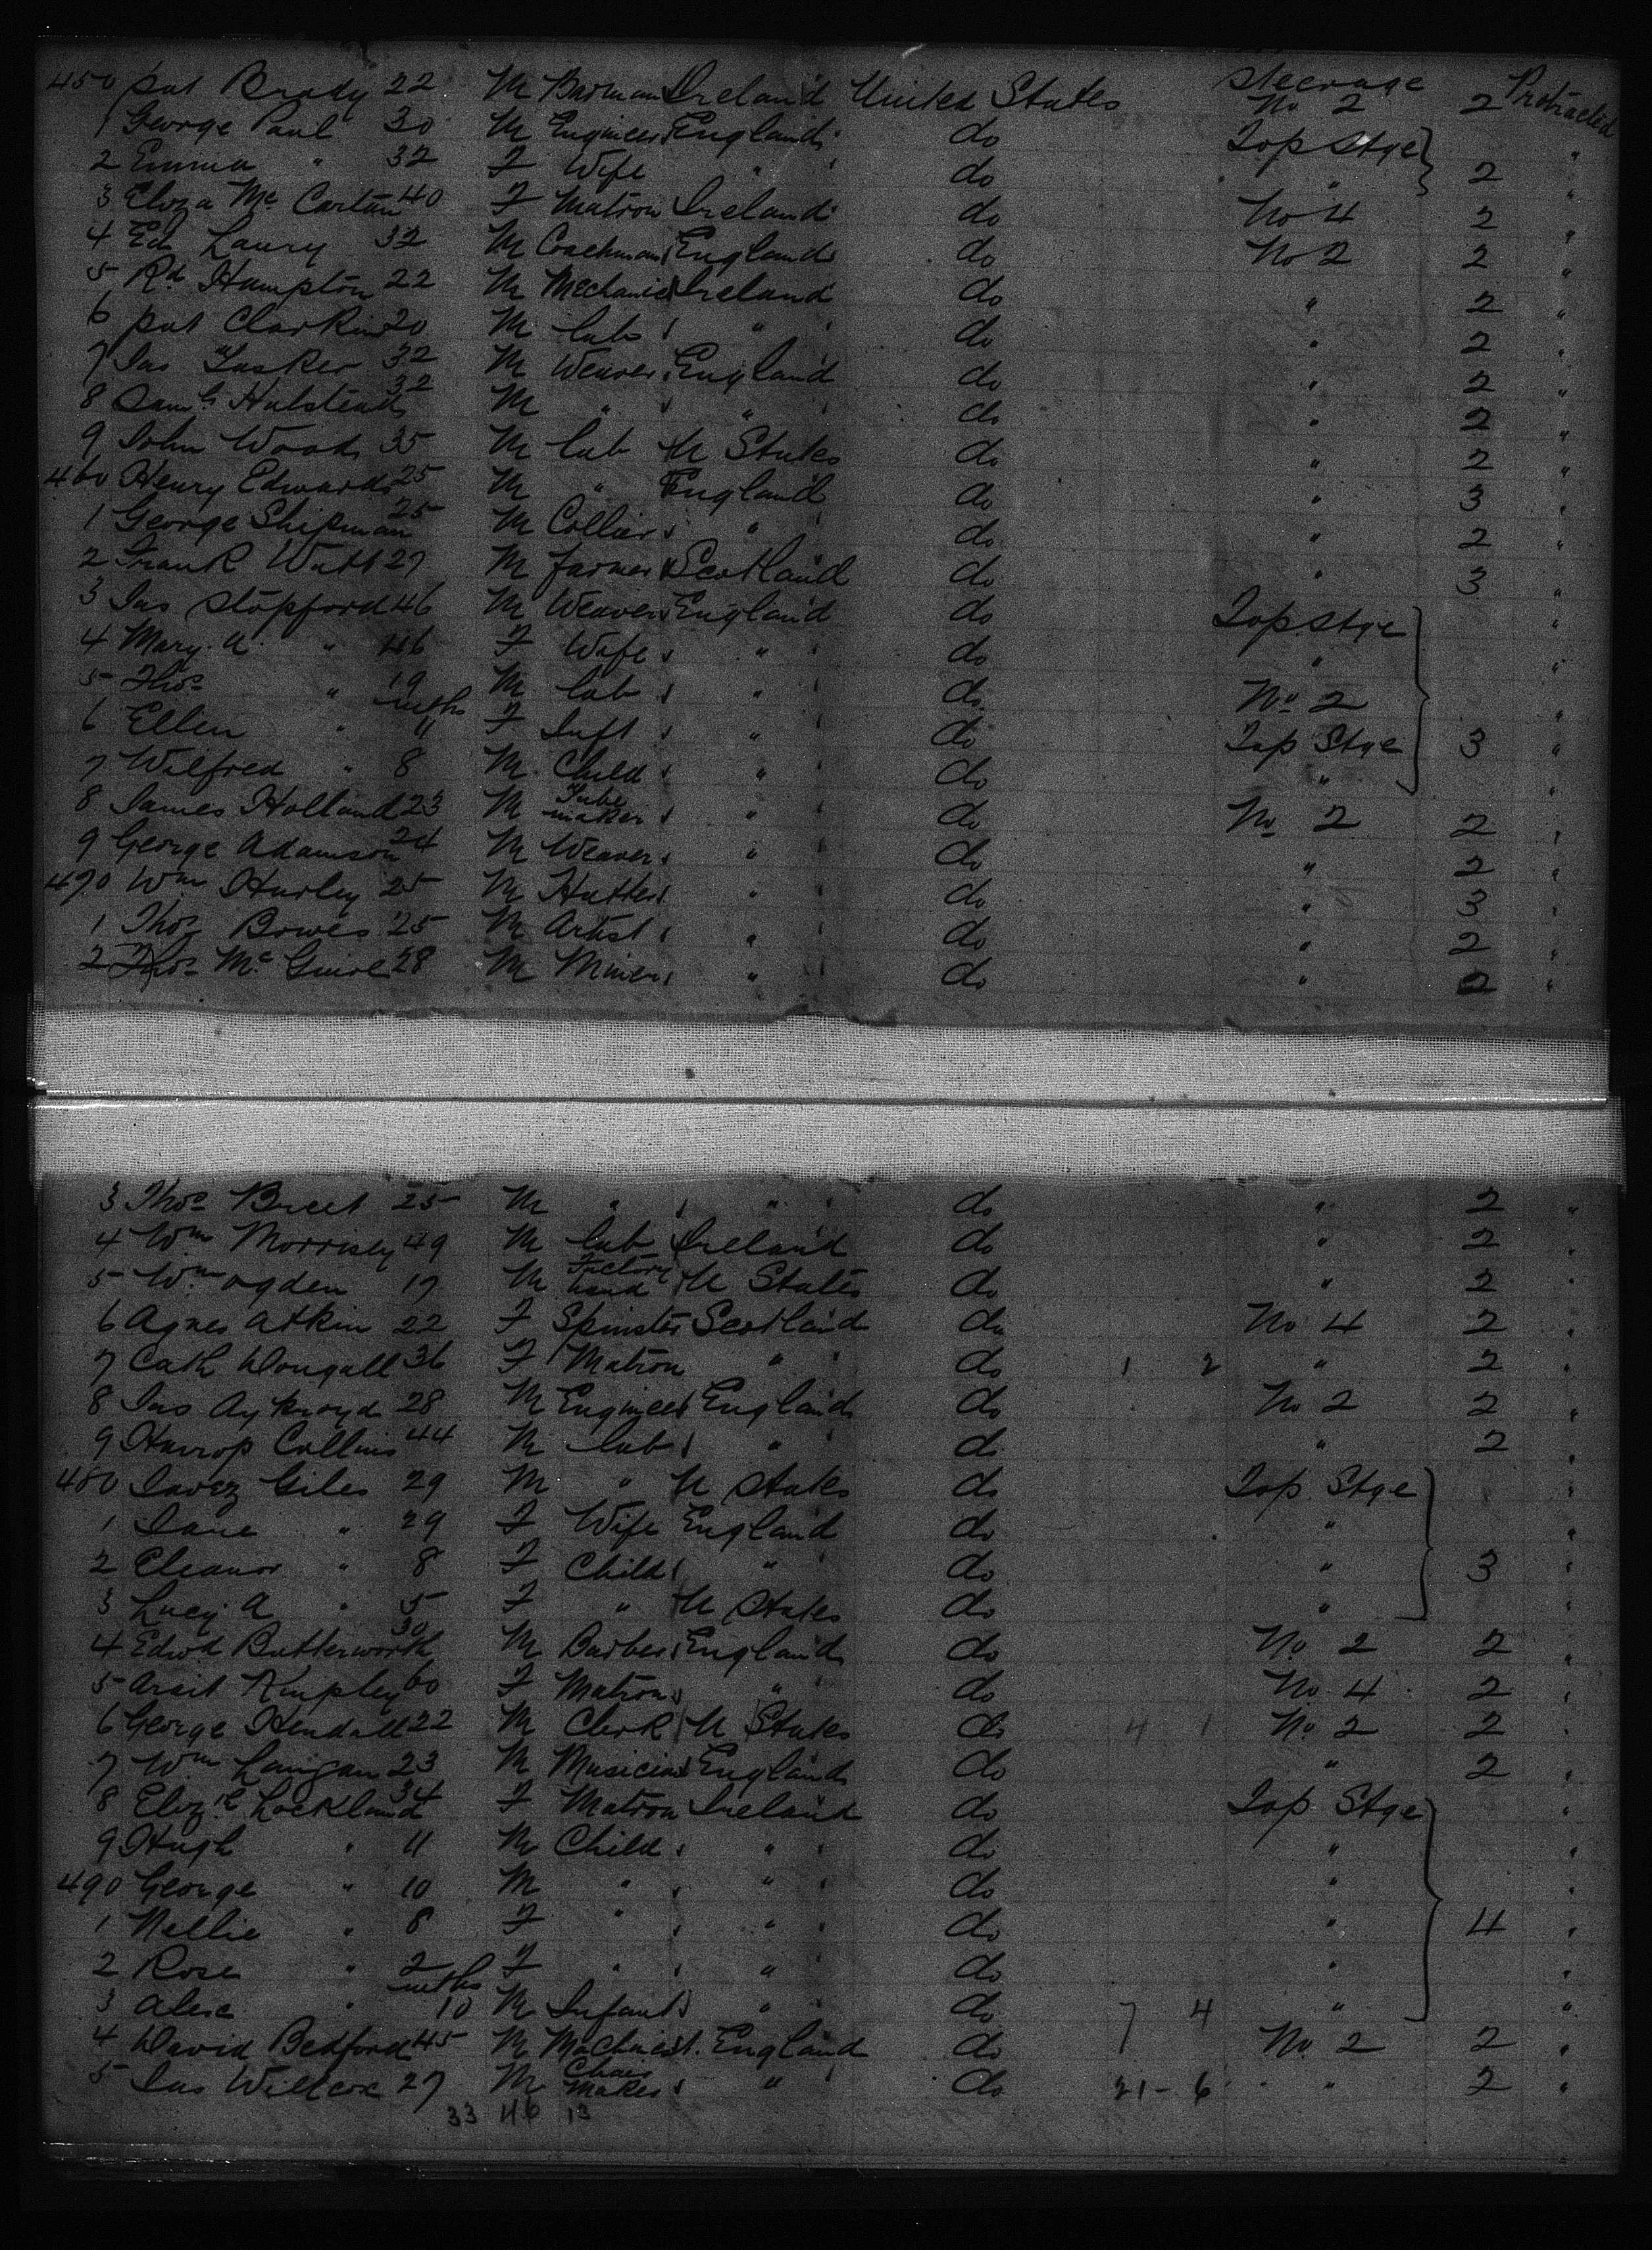 450 Pat Brady 22 M Barman Ireland United States Steerage No 2 2 Protracted
1 George Paul 30 M Engineer England do Top Stge "
2 Emma " 32 F Wife " do " 2 "
3 Eliza Mc Cartan 40 F Matron Ireland do No 4 2 "
4 Ed Laury 32 M Coachman England do No 2 2 "
5 Rd Hampton 22 M Mechanic Ireland do " 2 "
6 Pat Clarkin 20 M lab " do " 2 "
7 Jas Tasker 32 M Weaver England do " 2 "
8 Saml Halstead 32 M " " do " 2 "
9 John Woods 35 M lab U States do " 2 "
460 Henry Edwards 25 M " England do " 3 "
1 George Shipman 25 M Collier " do " 2 "
2 Frank Watt 27 M farmer Scotland do " 3 "
3 Jas Stopford 46 M Weaver England do Top Stge "
4 Mary A " 46 F Wife " do " "
5 Thos " 19 M lab " do No 2 "
6 Ellen " mths 11 F Inft " do Top Stge 3 "
7 Wilfred " 8 M Child " do " "
8 James Holland 23 M Tube maker " do No 2 2 "
9 George Adamson 24 M Weaver " do " 2 "
470 Wm Hurley 25 M Hatter " do " 3 "
1 Thos Bowes 25 M Artist " do " 2 "
2 Thos Mc Guire 28 M Miner " do " 2 "
3 Thos Breet 25 M " " do " 2 "
4 Wm Morrisly 49 M lab Ireland do " 2 "
5 Wm Ogden 17 M Factory hand U States do " 2 "
6 Agnes Atkin 22 F Spinster Scotland do No 4 2 "
7 Cath Dougall 36 F Matron " do 1 2 " 2 "
8 Jas Aykroyd 28 M Engineer England do No 2 2 "
9 Harrop Collins 44 M lab " do " 2 "
480 Javez Giles 29 M " U States do Top Stge "
1 Jane " 29 F Wife England do " "
2 Eleanor " 8 F Child " do " 3 "
3 Lucy A " 5 F " U States do " "
4 Edwd Butterworth 30 M Barber England do No 2 2 "
5 Kinpley 60 F Matron " do No 4 2 "
6 George Hendall 22 M Clerk U States do 4 1 No 2 2 "
7 Wm Lanigan 23 M Musician England do " 2 "
8 Elizth Lockland 34 F Matron Ireland do Top Stge "
9 Hugh " 11 M Child " do " "
490 George " 10 M " " do " "
1 Nellie " 8 F " " do " 4 "
2 Rose " 2 F " " do " "
3 Alex " mths 10 M Infant " do 7 4 " "
4 David Bedford 45 M Machinist England do No 2 2 "
5 Jas Willcox 27 M Chair Maker " do 21-6 " 2 "
33 46 13